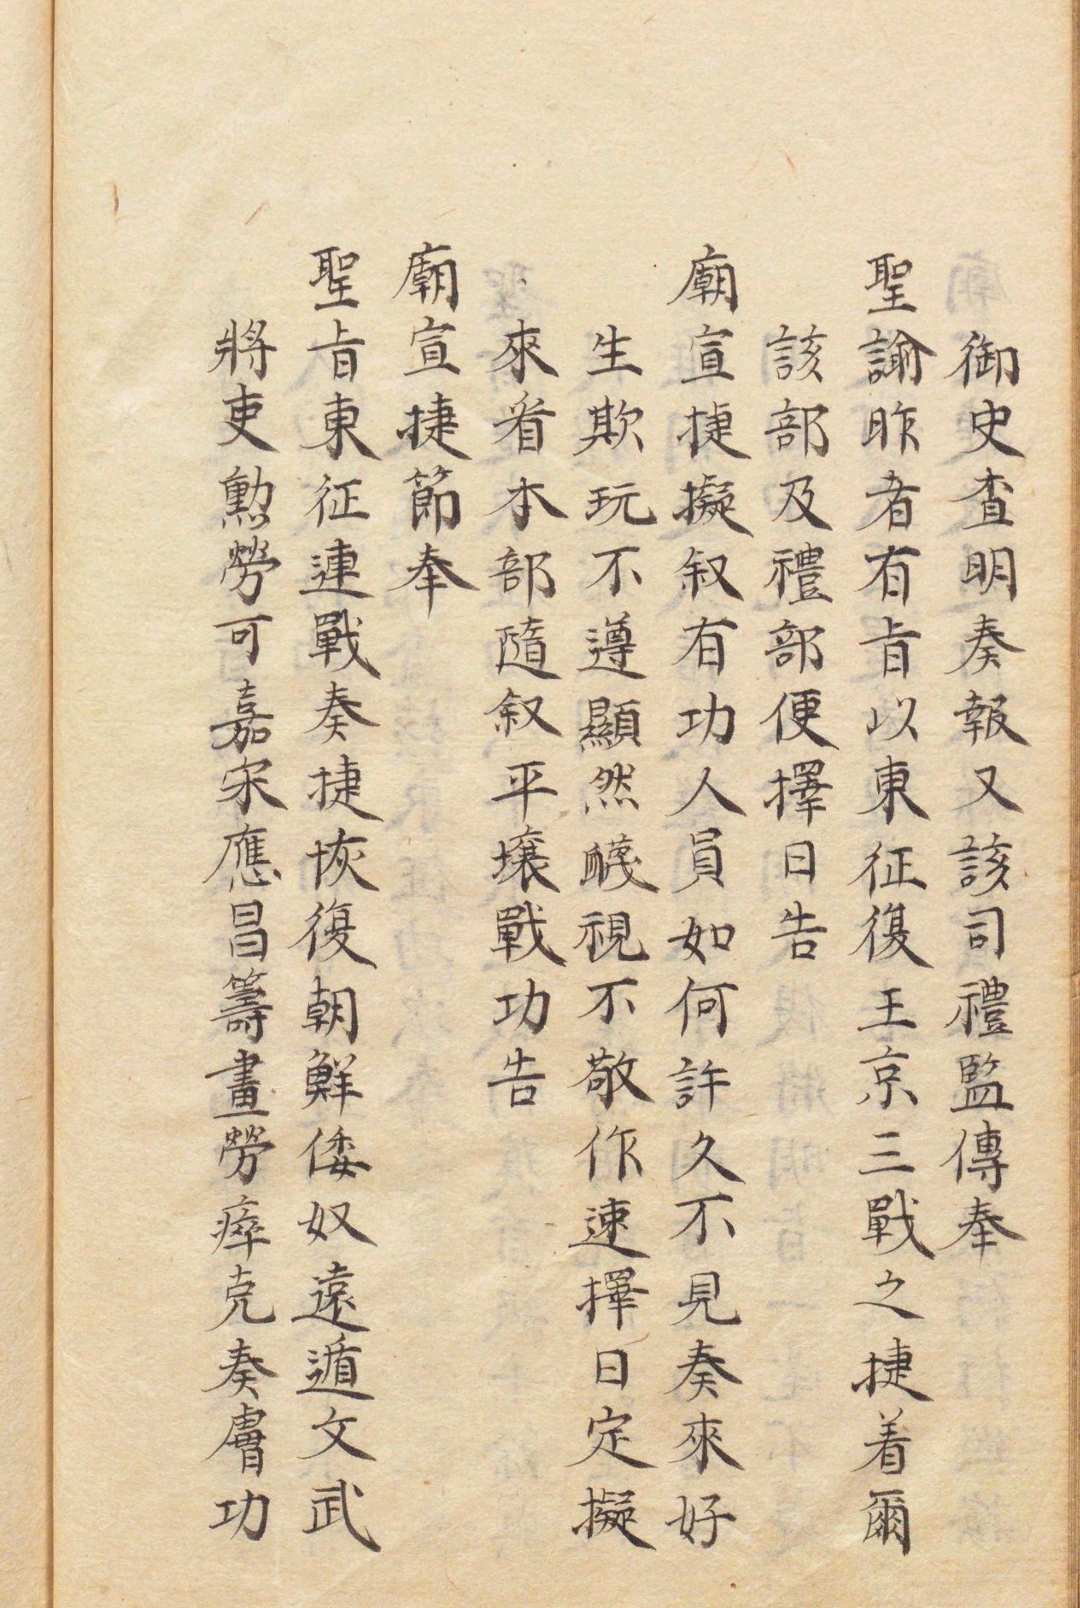 御史查明奏報又該司禮監傳奉
聖諭昨者有旨以東征復王京三戰之捷着爾
該部及禮部便擇日告
廟宣捷擬叙有功人員如何許久不見奏來好
生欺玩不遵顯然衊視不敬作速擇日定擬
來看本部隨叙平壤戰功告
廟宣捷節奉
聖旨東征連戰奏捷恢復朝鮮倭奴遠遁文武
將吏勲勞可嘉宋應昌籌畫勞瘁克奏膚功